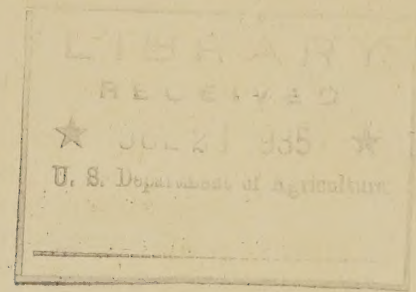 LIBRARY
RECEIVED
★ 1935 ★
U. S. Department of Agriculture